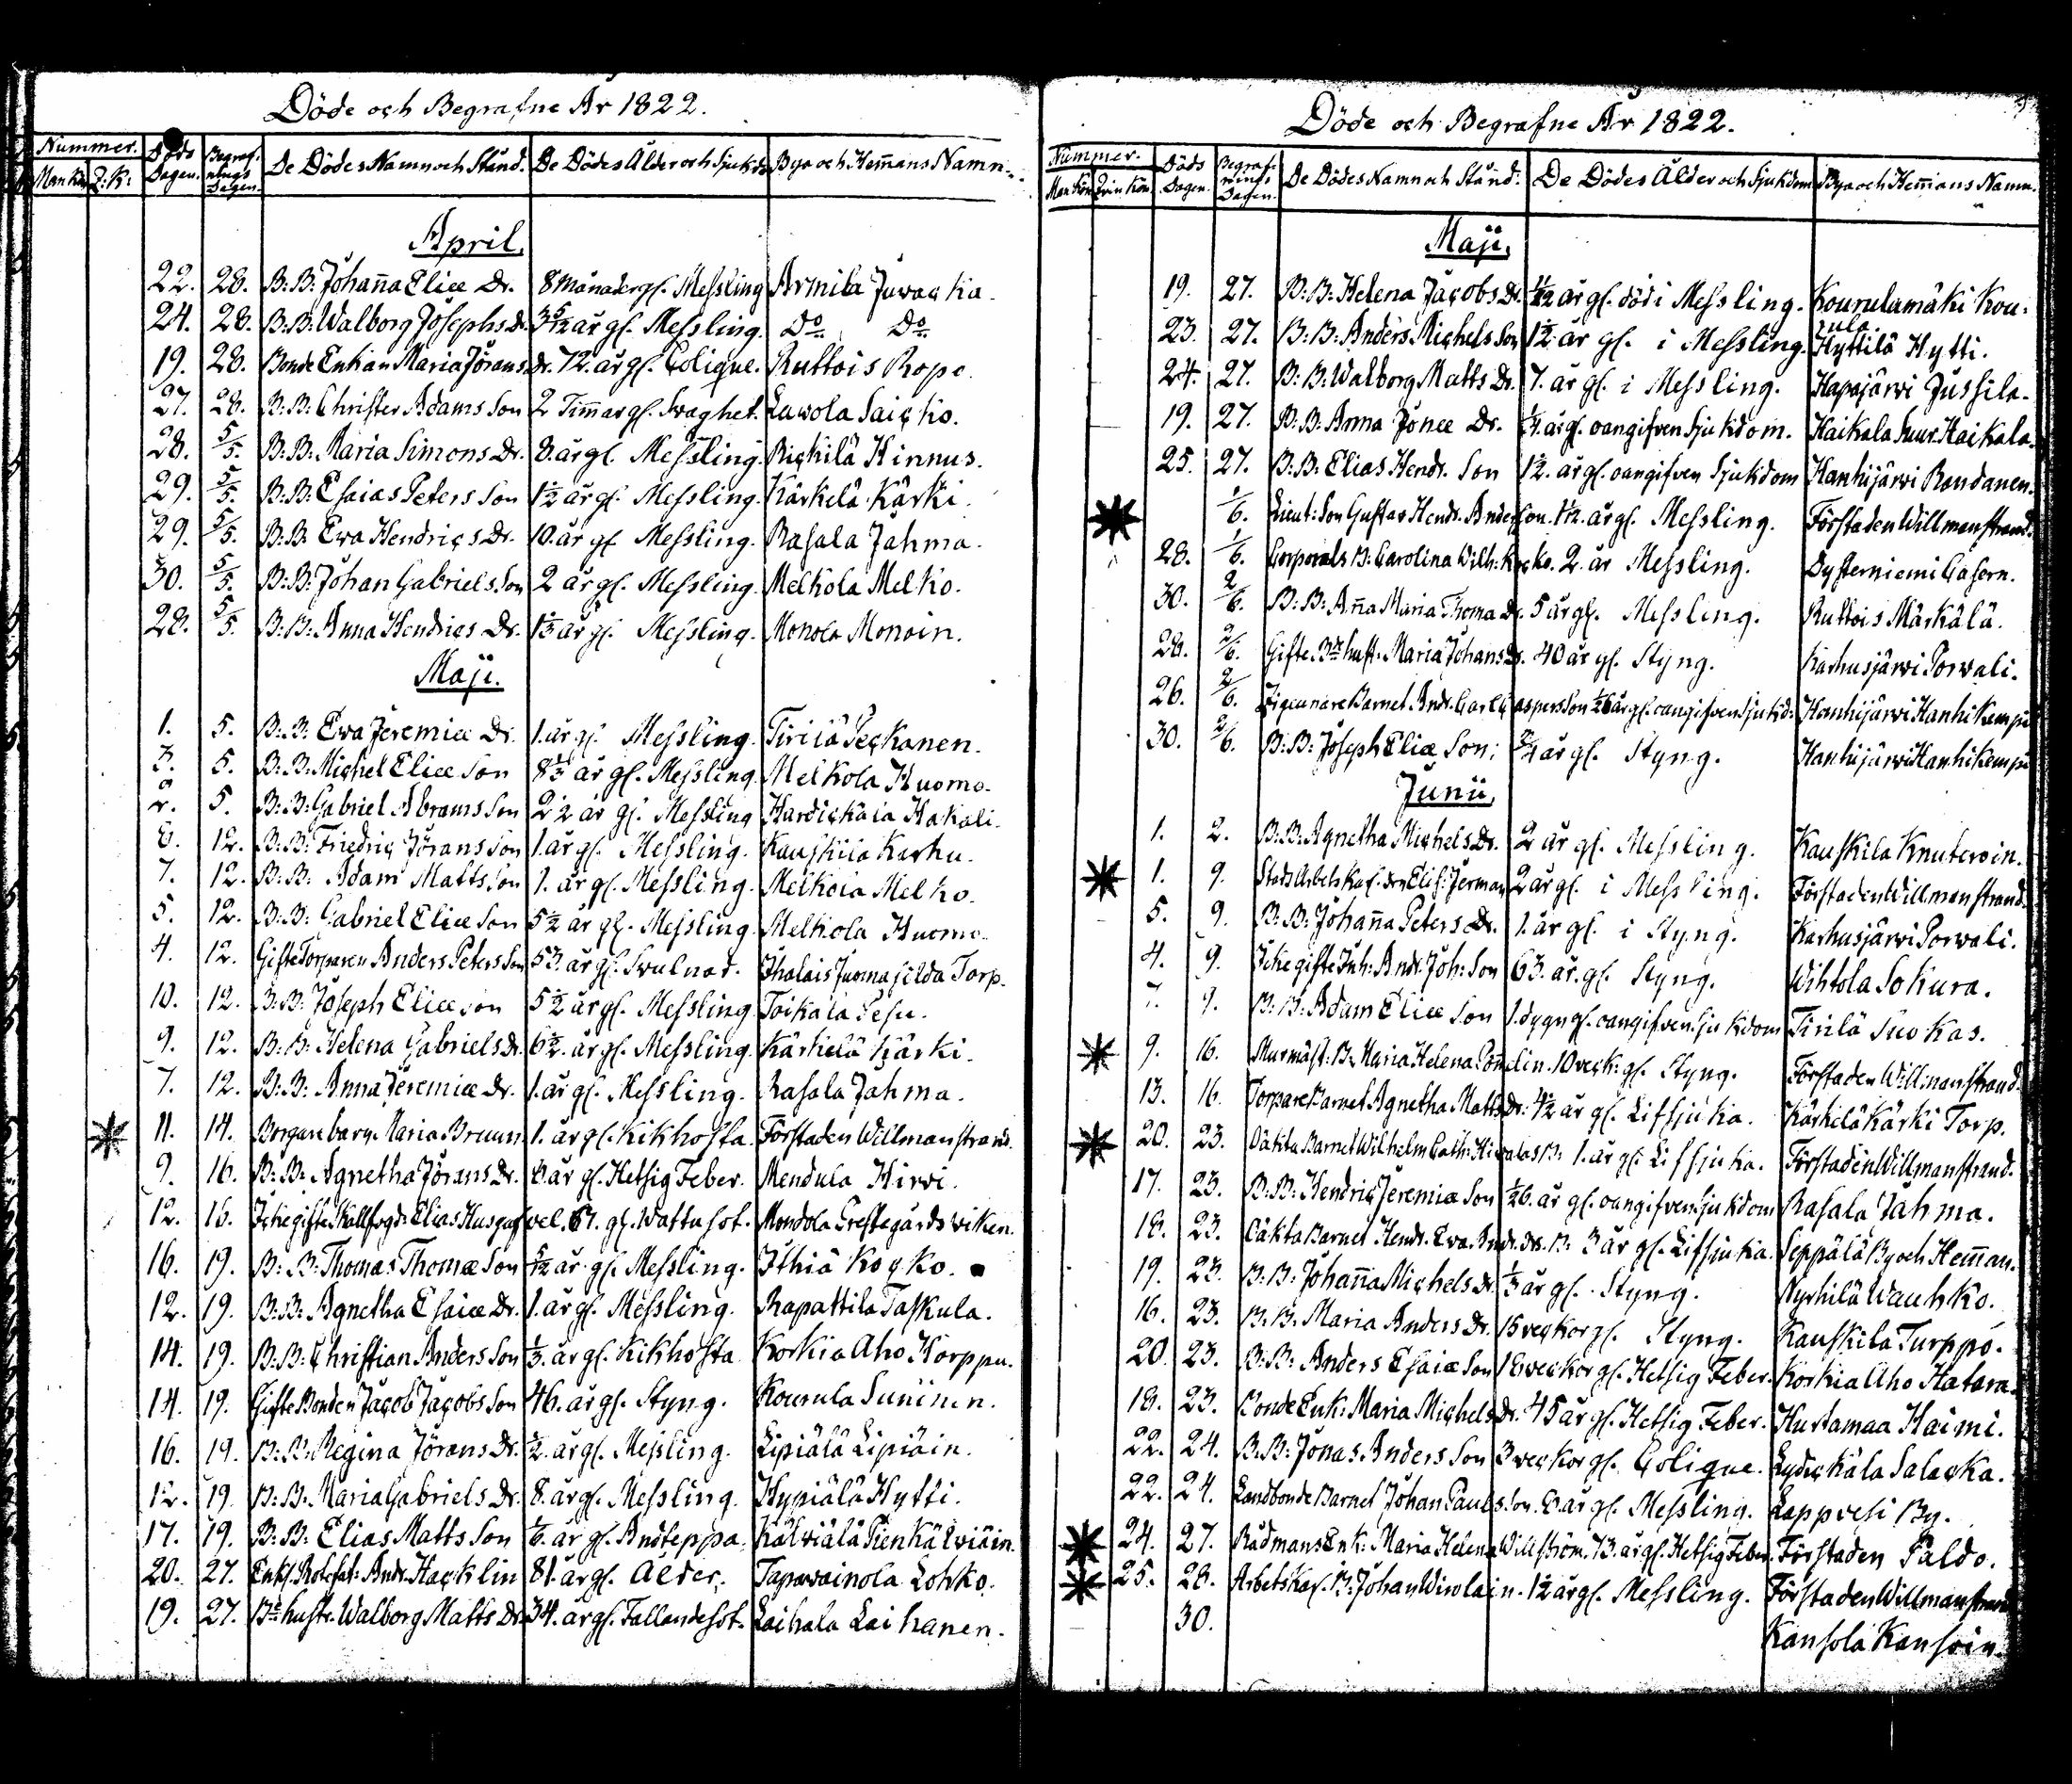 Döde och Begrafne År 1822.
Nummer. Döds Dagen. Begraf: nings Dagen. De Dödes Namn och Stånd. De Dödes Ålder och Sjukdom Bya och Hem̃ans Namn.
Man Kön Q: K:
April.
22. 28. B: B: Johan̄a Eliæ Dr. 8 Månader gl. Messling Armila Juvacka.
24. 28. B: B: Walborg Josephs Dr. 3 5/12 år gl. Messling. Do Do
19. 28. Bonde Enkan Maria Jörans Dr. 72. år gl. Colique. Ruttois Rope
27. 28. B: B: Christer Adams Son 2 Tim̃ar gl. Svaghet. Lawola Saicko.
28. 5/5. B: B: Maria Simons Dr. 8. år gl. Messling. Rickilä Hinnus.
29. 5/5. B: B: Esaias Peters Son 1 1/2 år gl. Messling. Kärkelä Kärki.
29. 5/5. B: B: Ewa Hendrics Dr. 10. år gl. Messling. Rasala Jahma.
30. 5/5. B: B: Johan Gabriels Son 2 år gl. Messling. Melkola Melko.
28. 5/5. B: B: Anna Hendrics Dr. 1 1/3 år gl. Messling. Monola Monoin.
Maji.
1. 5. B: B: Ewa Jeremiæ Dr. 1. år gl. Messling. Tiriiä Peckanen.
3. 5. B: B: Michel Eliæ Son 8 1/3 år gl. Messling. Melkola Huomo.
2. 5. B: B: Gabriel Abrams Son 2 1/2 år gl. Messling Hurdickaia Hakali.
8. 12. B: B: Friedric Jörans Son 1. år gl. Messling. Kauskila Karhu.
7. 12. B: B: Adam Matts Son 1. år gl. Messling. Melkola Melko.
5. 12. B: B: Gabriel Eliæ Son 5 1/2 år gl. Messling. Melkola Huomo.
4. 12. Gifte Torparen Anders Peters Son 53. år gl. Svulnad. Ihalais Juomasilda Torp.
10. 12. B: B: Joseph Eliæ Son 5 1/2 år gl. Messling Toikala Pesu.
9. 12. B: B: Helena Gabriels Dr. 6 1/2. år gl. Messling. Kärkelä Kärki.
7. 12. B: B: Anna Jeremiæ Dr. 1. år gl. Messling. Rasala Jahma.
11. 14. Borgare barn Maria Bruun 1. år gl. Kikhosta. Förstaden Willmanstrand.
9. 16. B: B: Agnetha Jörans Dr. 8. år gl. Hetsig Feber. Mendula Hirvi.
12. 16. Icke gifte Kallfogd: Elias Husgafvel. 67. gl. Wattusot. Mondola Prestegårds viken.
16. 19. B: B: Thomas Thomæ Son 5/12 år gl. Messling. Ithiä Kocko.
12. 19. B: B: Agnetha Esaiæ Dr. 1. år gl. Messling. Rapattila Taskula.
14. 19. B: B: Christian Anders Son 1/3. år gl. Kikhosta Korkia Aho Horppu.
14. 19. Gifte Bonden Jacob Jacobs Son 46. år gl. Styng. Kourula Suninen.
16. 19. B: B: Regina Jörans Dr. 1/2. år gl. Messling. Lipiälä Lipiäin.
12. 19. B: B: Maria Gabriels Dr. 8. år gl. Messling. Hypiälä Hytti.
17. 19. B: B: Elias Matts Son 1/6. år gl. Andteppa. Kälviälä Pien Kälviäin.
20. 27. Enkl. Rotefat: Andr. Hacklin 81. år gl. Ålder. Tapavainola Lohko.
19. 27. Bde. hustr. Walborg Matts Dr. 34. år gl. Fallandesot. Laihala Laihanen.
Döde och Begrafne År 1822.
Nummer. Döds Dagen. Begraf: nings Dagen. De Dödes Namn och Stånd. De Dödes Ålder och Sjukdom Bya och Hem̃ans Namn.
Man Kön Qvin Kön
Maji.
19. 27. B: B: Helena Jacobs Dr. 1/12 år gl. död i Messling. Kourulamäki Kou:
rula.
23. 27. B: B: Anders Michels Son 1 1/2 år gl. i Messling. Hyttilä Hytti.
24. 27. B: B: Walborg Matts Dr. 7. år gl. i Messling. Hapajärvi Jussila.
19. 27. B: B: Anna Jonæ Dr. 1/4. år gl. oangifven Sjukdom. Haikala Suur Haikala.
25. 27. B: B: Elias Hendr. Son 1 1/2. år gl. oangifven Sjukdom Hanhijärvi Rondanen.
1/6. Lieut: Son Gustav Hendr. Anderson. 1 1/12. år gl. Messling. Förstaden Willmanstrand.
28. 1/6. Corporals B: Carolina Wilh: Kocko. 2. år Messling. Dysterniemi Casern.
30. 2/6. B: B: An̄a Maria Thoma Dr. 5 år gl. Messling. Ruttois Märkälä.
28. 2/6. Gifte Bde hust. Maria Johans Dr. 40 år gl. Styng. Karhusjärvi Porvali.
26. 2/6. Zigeunare Barnet Andr. Carl Caspers Son 1/26 år gl. oangifven Sjukd: Hanhijärvi Hanhikempi
30. 2/6. B: B: Joseph Eliæ Son: 3/4 år gl. Styng. Hanhijärvi Hanhikempi
Junii.
1. 2. B: B: Agnetha Michels Dr. 2 år gl. Messling. Kauskila Knutevoin.
1. 9. Stads Arbets Karl. dr Elis: Jerman 2 år gl. i Messling. Förstaden Willmanstrand.
5. 9. B: B: Johan̄a Peters Dr. 1. år gl. i Styng. Karhusjärvi Porvali.
4. 9. Icke gifte Inh: Andr. Joh: Son 63. år gl. Styng. Wihtola Sokura.
7. 9. B: B: Adam Eliæ Son 1. dygn gl. oangifven Sjukdom Tirilä Suokas.
9. 16. Murmäst: B: Maria Helena Pomelin. 10 veck: gl. Styng. Förstaden Willmanstrand.
13. 16. Torpare Barnet Agnetha Matts Dr. 4 1/2 år gl. Lifsjuka. Kärkelä Kärki Torp.
20. 23. Oäkta Barnet Wilhelm Cath: Hivalas B: 1. år gl. Lifsjuka. Förstaden Willmanstrand.
17. 23. B: B: Hendric Jeremiæ Son 1/26. år gl. oangifven Sjukdom Rasala Jahma.
18. 23. Oäkta Barnet Hendr. Ewa Andr. Drs. B: 3 år gl. Lifsjuka. Seppälä By och Hem̃an.
19. 23. B: B: Johan̄a Michels Dr. 1/3 år gl. Styng. Nyrhilä Wauhko.
16. 23. B: B: Maria Anders Dr. 15 veckor gl. Styng. Kauskila Turppo.
20. 23. B: B: Anders Esaiæ Son 18 veckor gl. Hetsig Feber. Korkia Aho Hatara.
18. 23. Bonde Enk: Maria Michels Dr. 45 år gl. Hetsig Feber. Hurtamaa Haimi.
22. 24. B: B: Jonas Anders Son 3 veckor gl. Colique. Lydickälä Salacka.
22. 24. Landbonde Barnet Johan Pauls Son. 8 år gl. Messling. Lappvesi By.
24. 27. Rådmans Enk: Maria Helena Willström. 73. år gl. Hetsig Feber. Förstaden Paldo.
25. 28. Arbets Karl. B: Johan Wirolain. 1 1/2 år gl. Messling. Förstaden Willmanstrand
30. Kansola Kansoin.